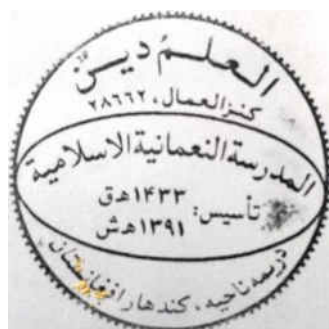 العلمُ دينٌ
كنز العمال، ٢٨٦٦٢
المدرسة النعمانية الاسلامية
تأسيس: ۱۴۳۳ هـ ق
۱۳۹۱ هـ ش
ناحيه، كندهار افغانستان